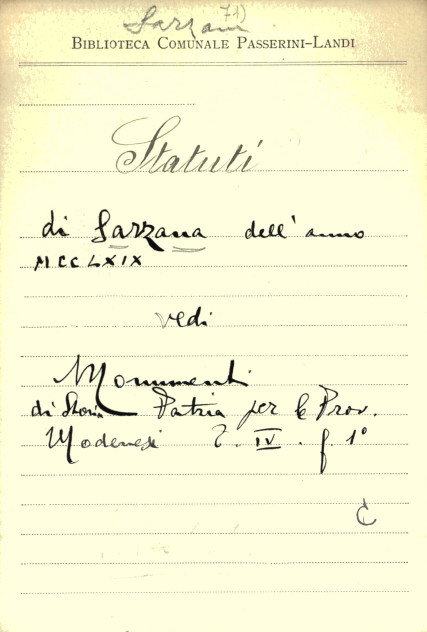 71)
Sarzana
BIBLIOTECA COMUNALE PASSERINI-LANDI
Statuti
di Sarzana dell' anno
MCCLXIX
vedi
Monumenti
di Stor. Patria per le Prov.
Modenesi T. IV. f. 1°
C